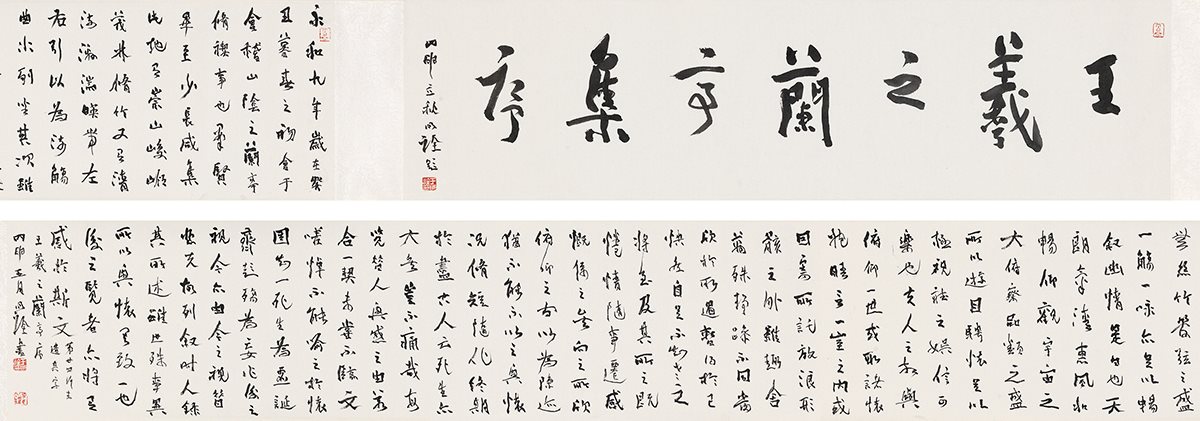 王羲之蘭亭集序
四明立秋
永和九年歲在癸
丑暮春之初會于
會稽山陰之蘭亭
脩禊事也羣賢
畢至少長咸集
此地有崇山峻嶺
茂林脩竹又有清
流激湍映帶左
右引以為流觴
曲水列坐其次雖
無絲竹管弦之盛
一觴一詠亦足以暢
敘幽情是日也天
朗氣清惠風和
暢仰觀宇宙之
大俯察品類之盛
所以遊目騁懷足以
極視聽之娛信可
樂也夫人之相與
俯仰一世或取諸懷
抱晤言一室之內或
因寄所託放浪形
骸之外雖趣舍
萬殊靜躁不同當
欣於所遇暫得於己
快然自足不知老之
將至及其所之既
倦情隨事遷感
慨係之矣向之所欣
俯仰之間以為陳迹
猶不能不以之興懷
況脩短隨化終期
於盡古人云死生亦
大矣豈不痛哉每
覽昔人興感之由若
合一契未嘗不臨文
嗟悼不能喻之於懷
固知一死生為虛誕
齊彭殤為妄作後之
視今亦由今之視昔
悲夫故列敘時人錄
其所述雖世殊事異
所以興懷其致一也
後之覽者亦將有
感於斯文
王羲之蘭亭序
四明